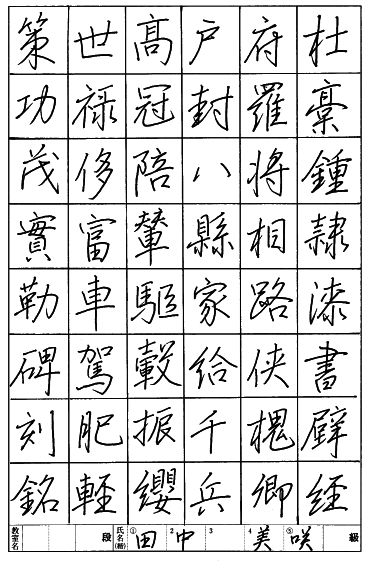 杜稾鍾隷漆書壁経
府羅将相路侠槐卿
戸封八縣家給千兵
髙冠陪輦驅轂振纓
世禄侈富車駕肥軽
策功茂實勒碑刻銘
教室名 段 氏名(楷) ①田 2中 3 4美 ⑤咲 級